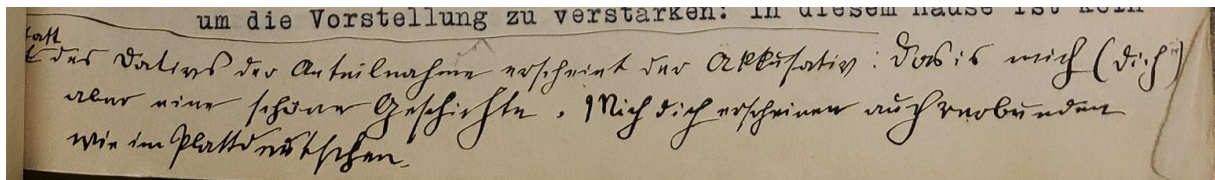 um die Vorstellung zu verstärken: In diesem Hause ist kein
statt des Dativs der Anteilnahme erscheint der Akkusativ: Das is mich (dich)
aber eine schöne Geschichte. Mich dich erscheinen auch verbunden
wie im Plattdeutschen.